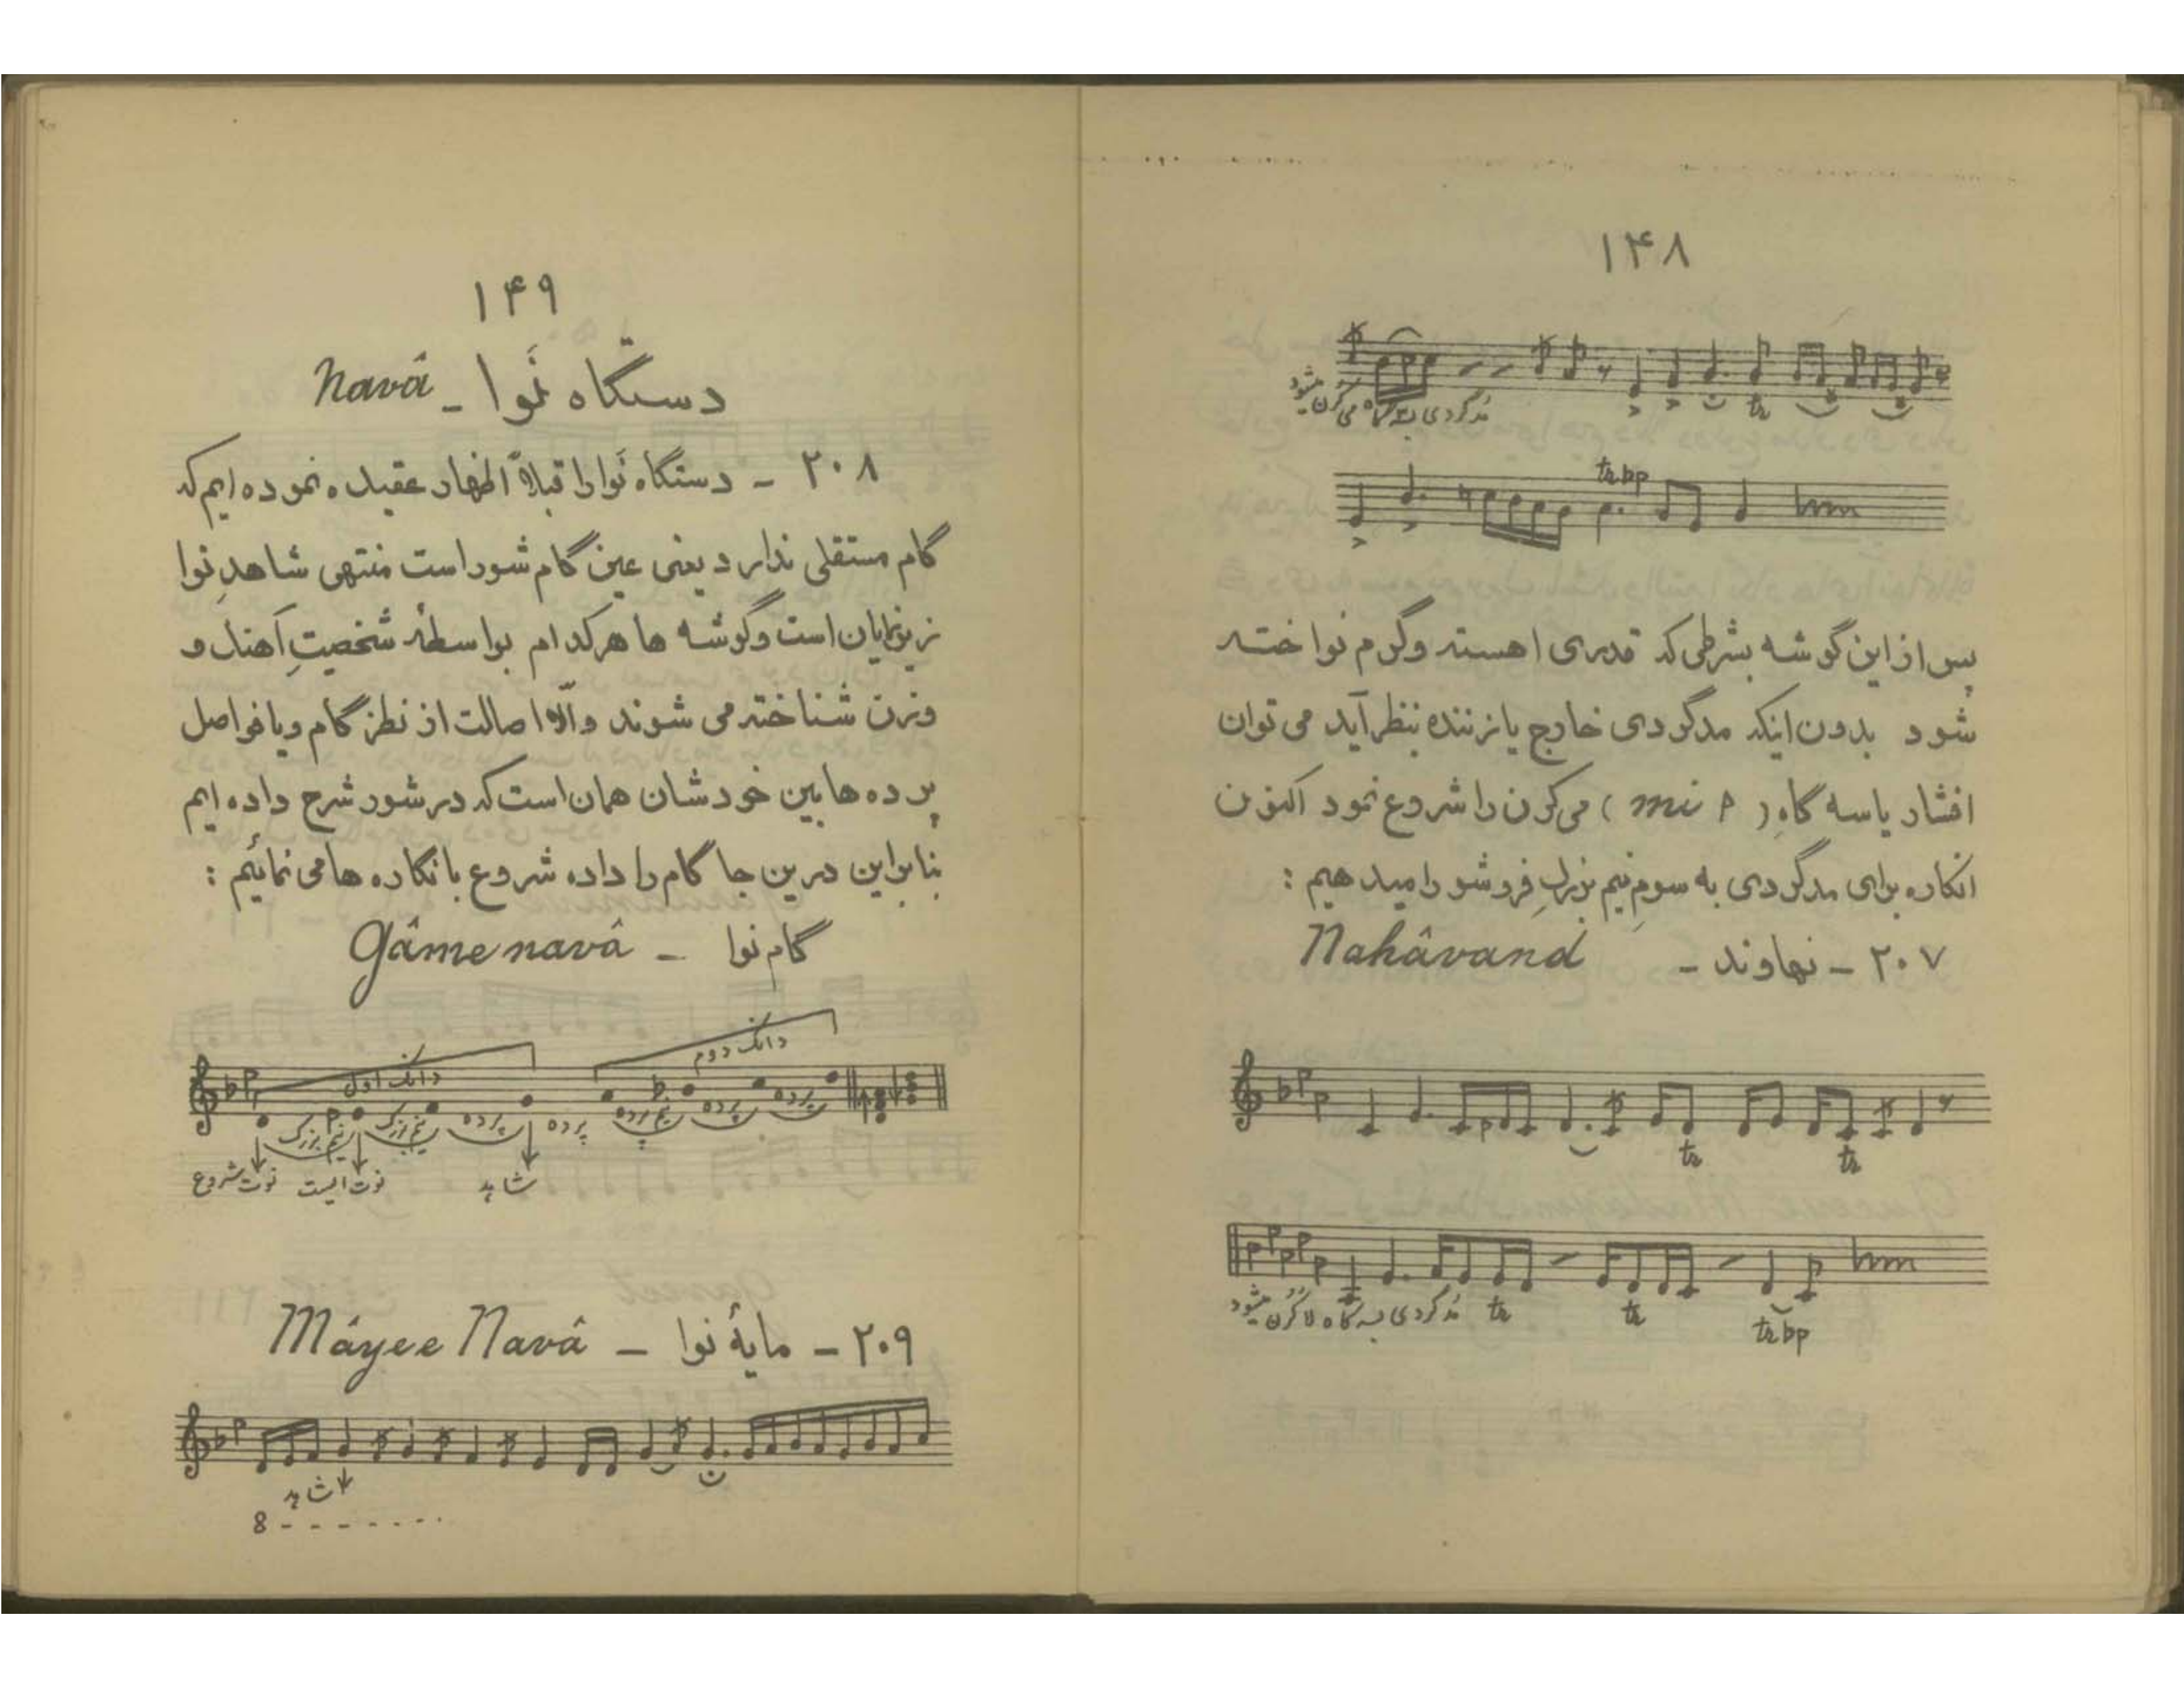 ۱۴۸
مدگردی به سه گاه می کرن میشود
tr
tr bp
پس از این گوشه بشرطی که قدری اهسته و گرم نواخته
شود بدون اینکه مدگردی خارج یا زننده بنظر آید می توان
افشار یا سه گاهِ (mi p) می کرن را شروع نمود اکنون
انگاره برای مدگردی به سومِ نیم بزرگِ فروشو را میدهیم :
۲۰۷ - نهاوند - Nahâvand
tr tr
مدگردی به سه گاه لا کرن میشود tr tr tr bp
۱۴۹
دستگاه نَوا - Navâ
۲۰۸ - دستگاه نَوا را قبلاً اظهار عقیده نموده ایم که
گام مستقلی ندارد یعنی عین گام شور است منتهی شاهدِ نوا
زیرنمایان است و گوشه ها هرکدام بواسطهٔ شخصیتِ آهنگ و
وزن شناخته می شوند و الّا اصالت از نطز گام و یا فواصل
پرده ها بین خودشان همان است که در شور شرح داده ایم
بنابراین درین جا گام را داده شروع بانگاره ها می نمائیم :
گام نوا - Gâme navâ
دانگ اول دانگ دوم
نیم بزرگ نیم بزرگ پرده پرده نیم پرده پرده پرده
نوت شروع نوت ایست شاهد
۲۰۹ - مایهٔ نوا - Mâyee Navâ
شاهد
8 - - - - - - - -